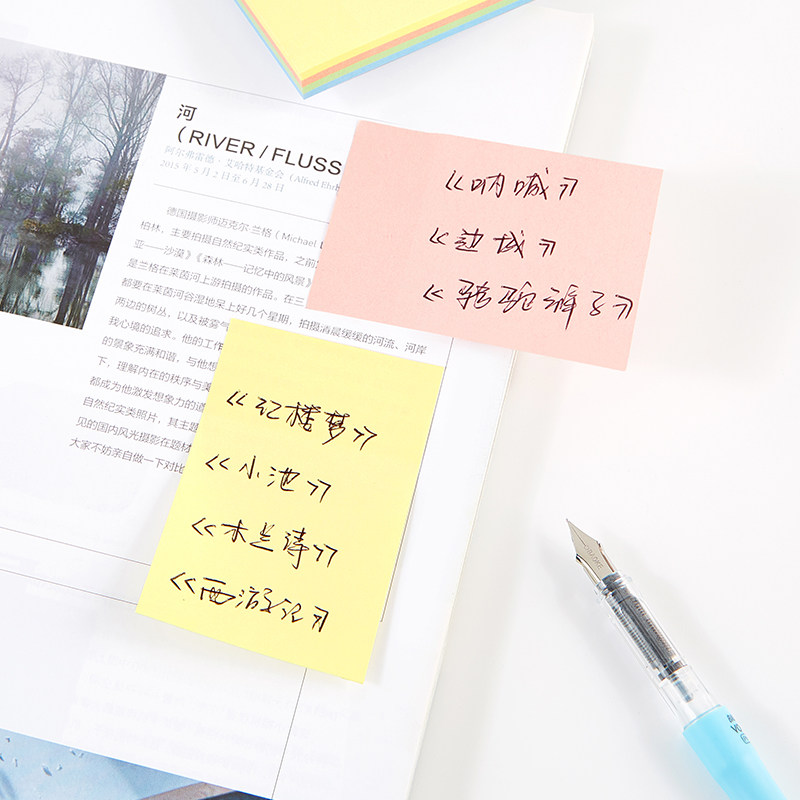 河
(RIVER / FLUSS
阿尔弗雷德·艾哈特基金会 (Alfred Ehr
2015年5月2日至6月28日
德国摄影师迈克尔·兰格 (Michael
柏林，主要拍摄自然纪实类作品，之前
亚——沙漠》《森林——记忆中的风景》
是兰格在莱茵河上游拍摄的作品。在三
都要在莱茵河谷湿地呆上好几个星期，拍摄清晨缓缓的河流、河岸
两边的树丛，以及被雾气
我心境的追求。他的工作
的景象充满和谐，与他想
下，理解内在的秩序与美
都成为他激发想象力的道
自然纪实类照片，其主题
见的国内风光摄影在题材
大家不妨亲自做一下对比
《呐喊》
《边城》
《骆驼祥子》
《红楼梦》
《小池》
《木兰诗》
《西游记》